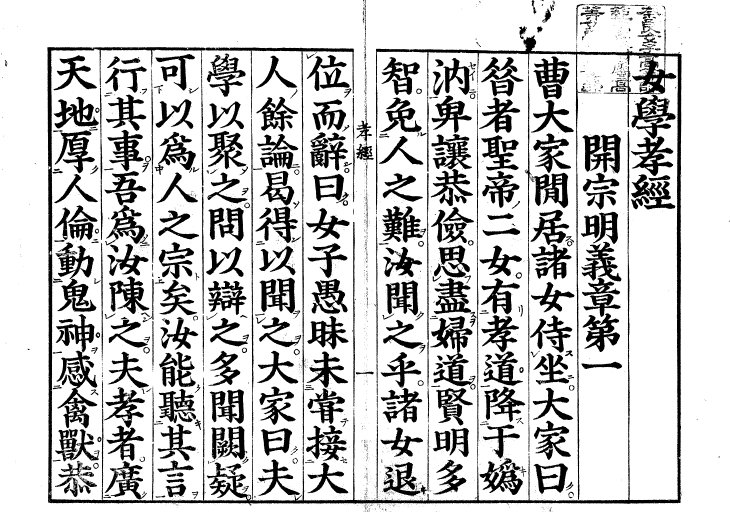 女學孝經
開宗明義章第一
曹大家閒居諸女侍坐大家曰
昝者聖帝二女有孝道降于嬀
汭卑讓恭儉思盡婦道賢明多
智免人之難汝聞之乎諸女退
孝經
一
位而辭曰女子愚昧未甞接大
人餘論曷得以聞之大家曰夫
學以聚之問以辯之多聞闕疑
可以爲人之宗矣汝能聽其言
行其事吾爲汝陳之夫孝者廣
天地厚人倫動鬼神感禽獸恭